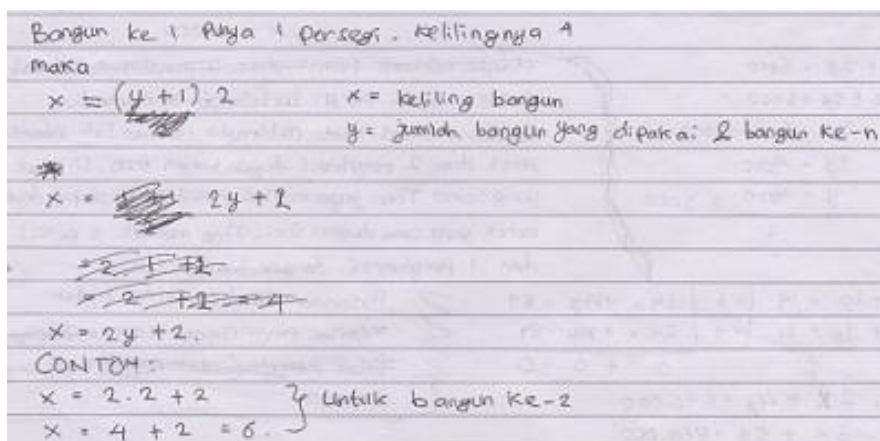 Bangun ke 1 Punya 1 persegi. kelilingnya 4
maka
x = (y + 1) . 2 x = keliling bangun
y = jumlah bangun yang dipakai & bangun ke-n
x = 2y + 2
= 2 . 1 + 2
= 2 + 2 = 4
x = 2y + 2.
CONTOH :
x = 2.2 + 2 } Untuk bangun ke-2
x = 4 + 2 = 6.